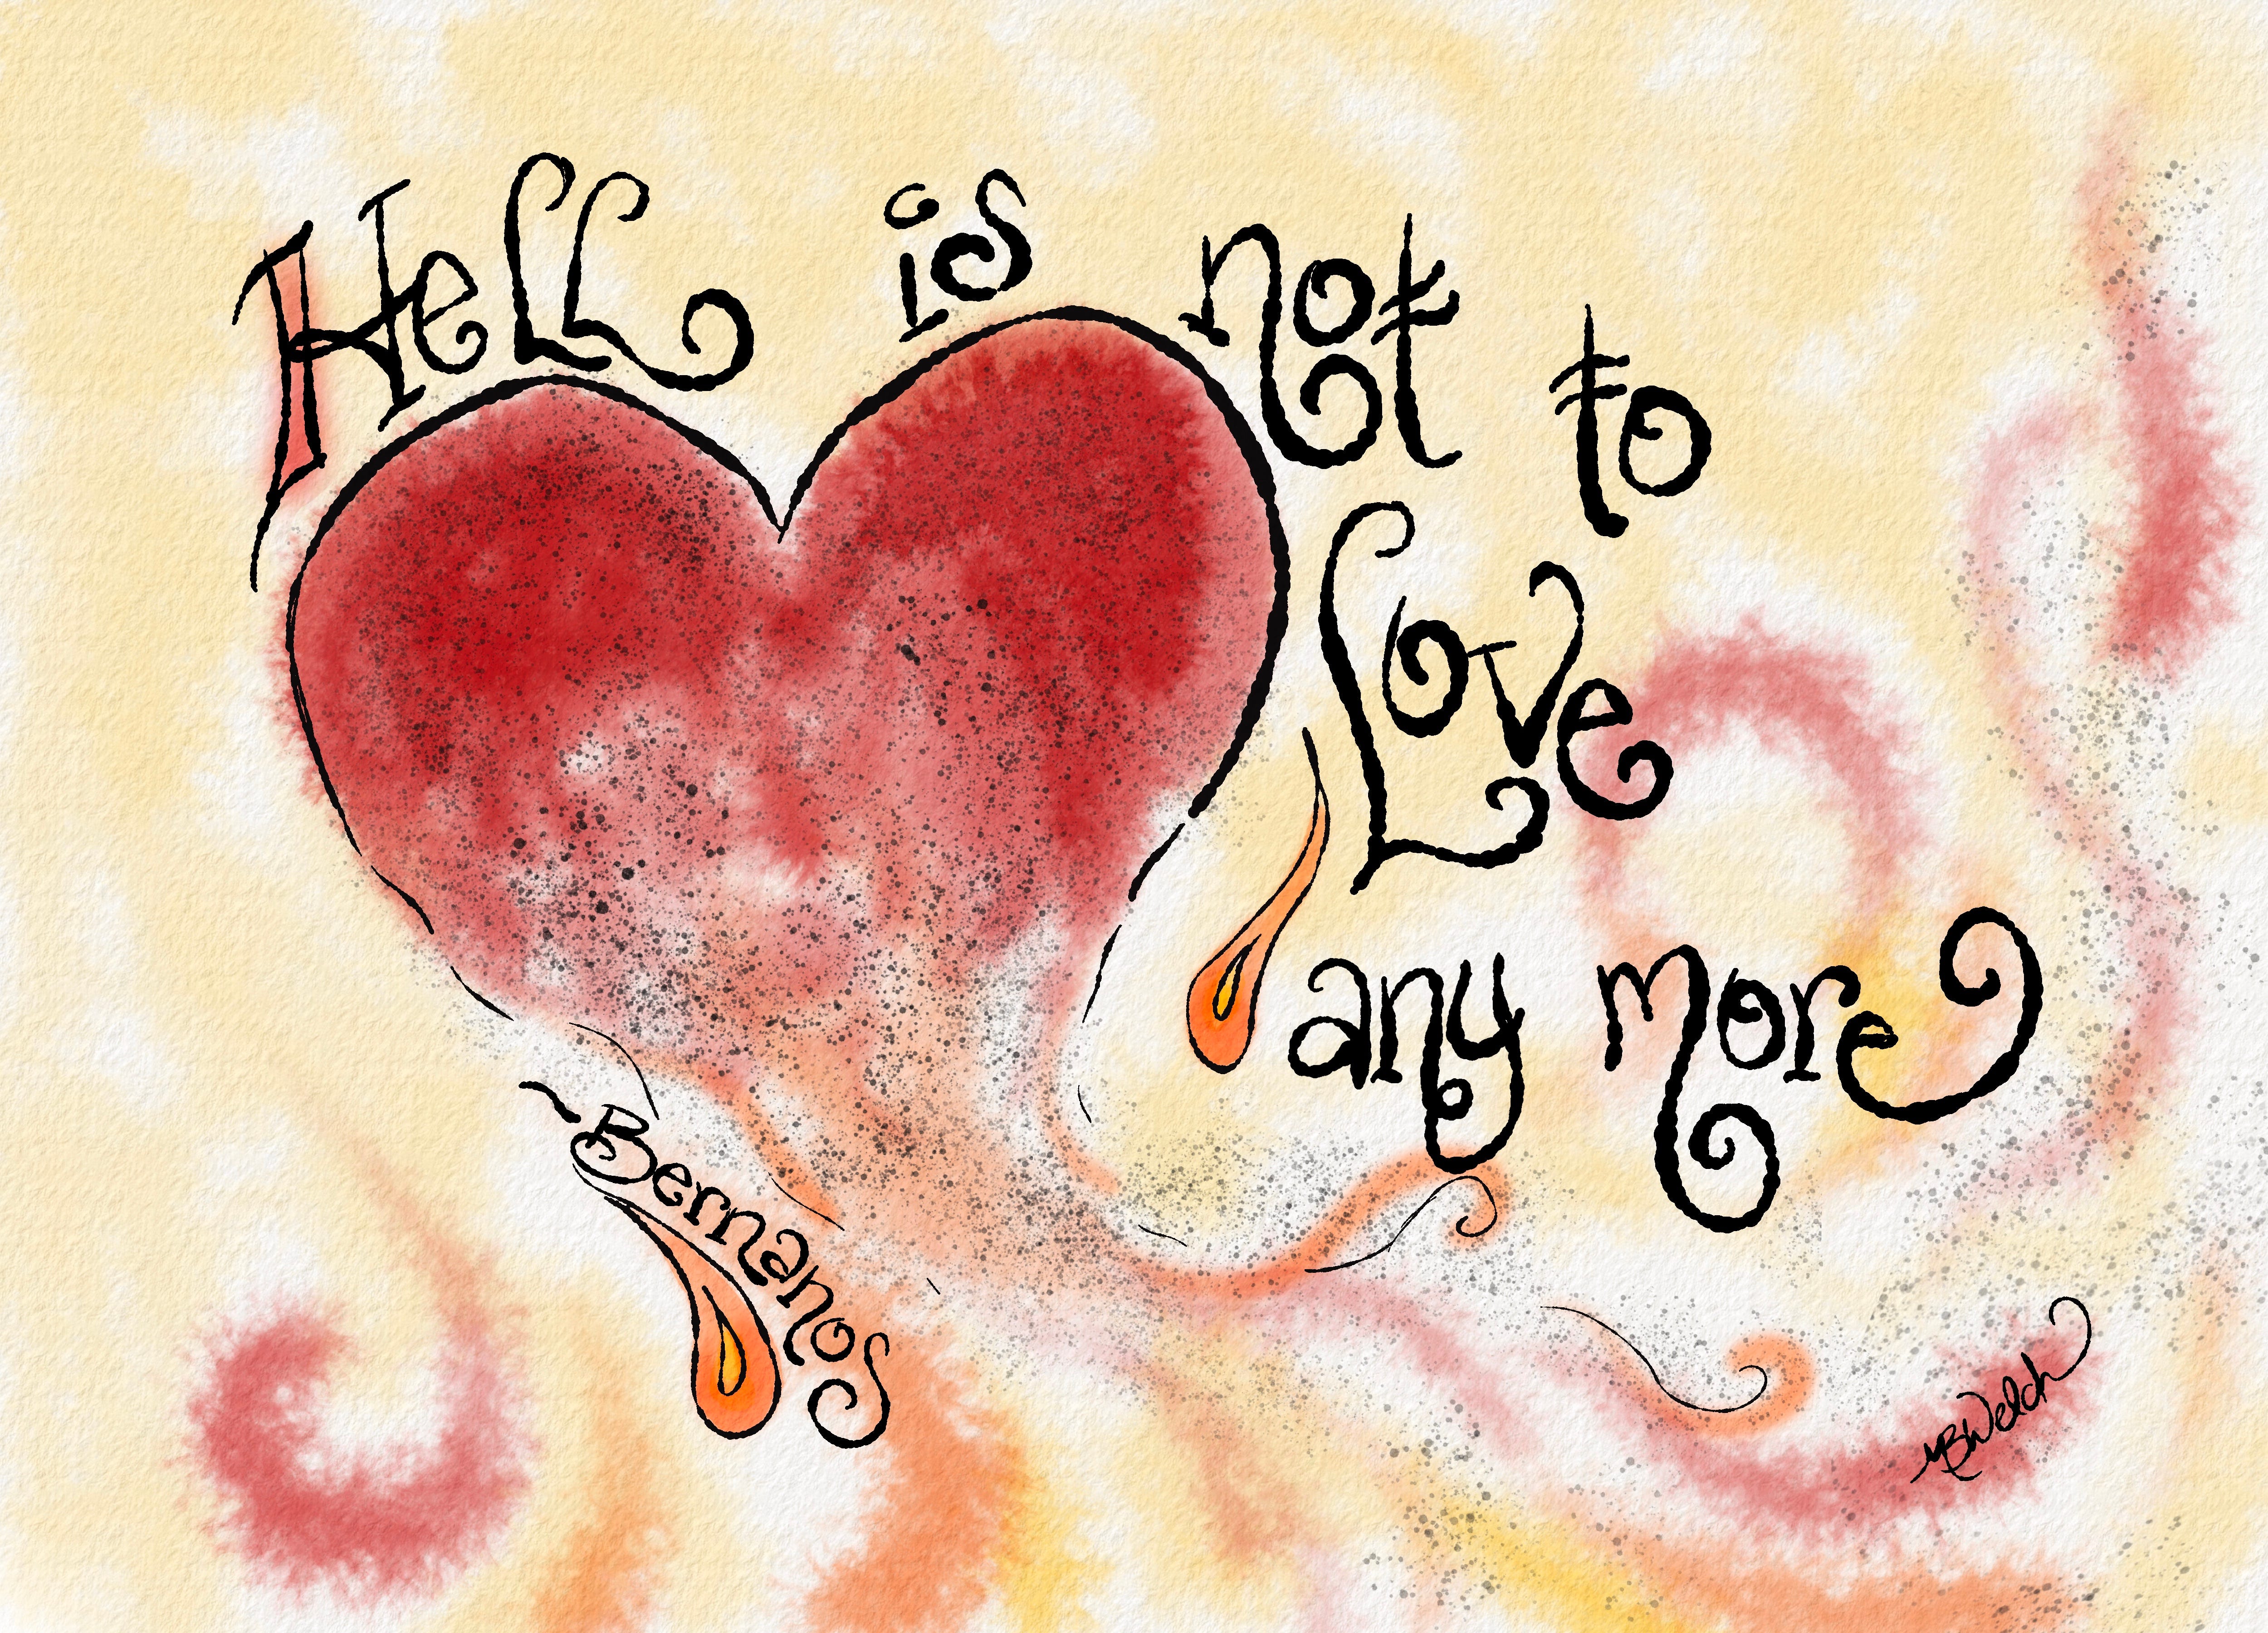 Hell is not to
Love
any more
~Bernanos
MBWelch